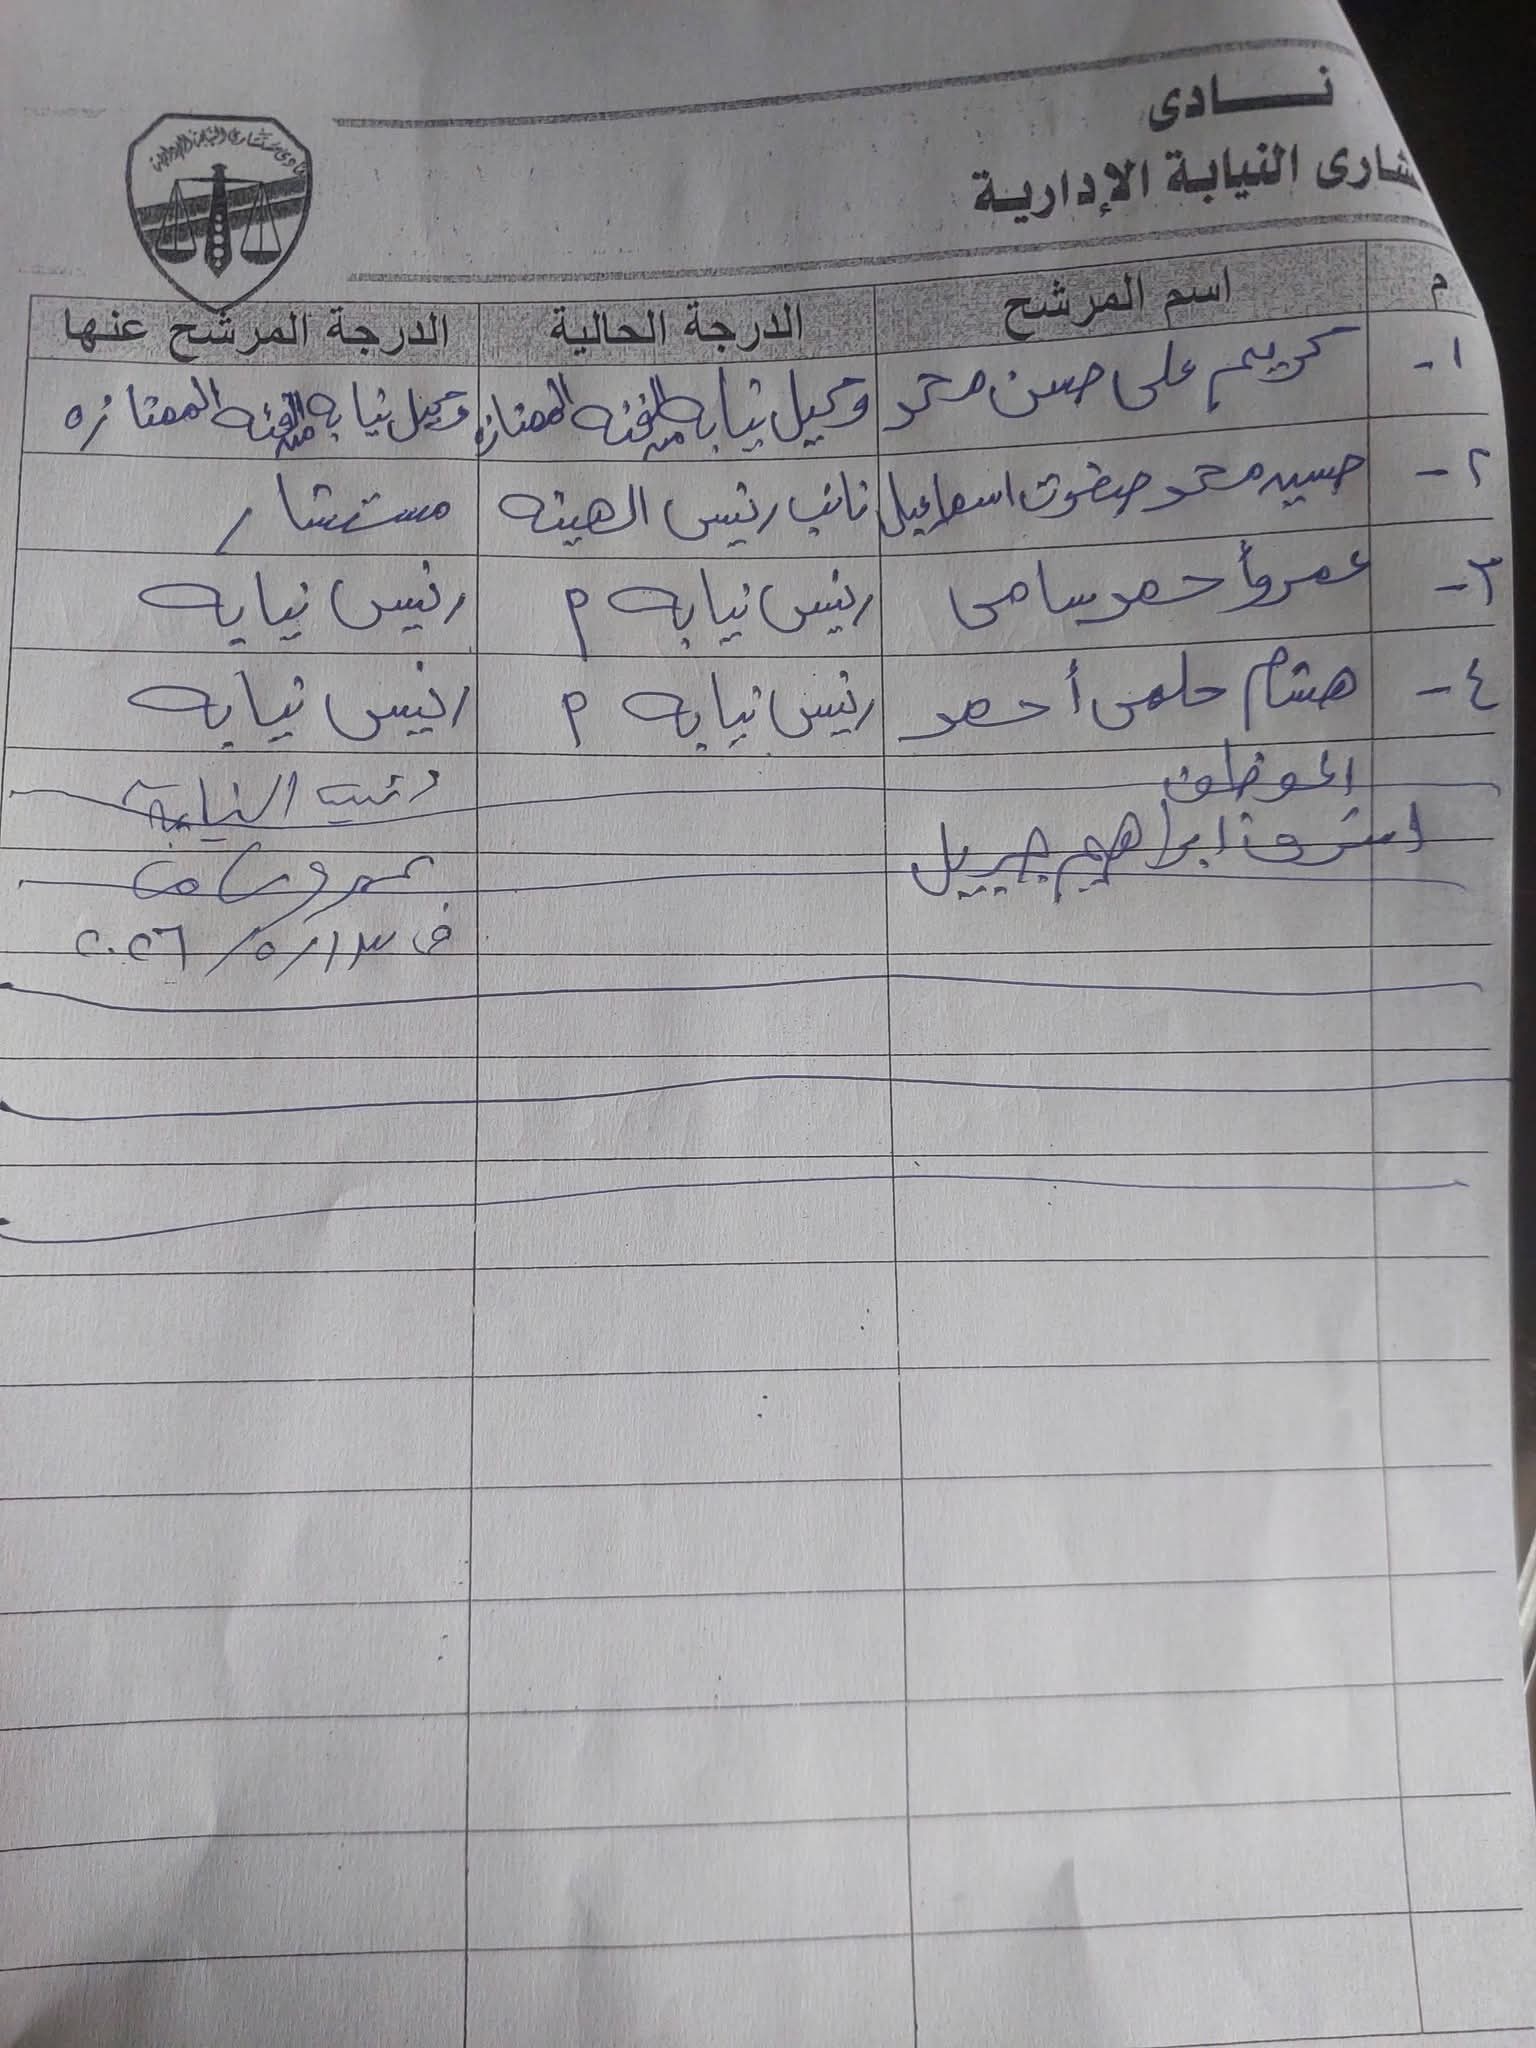 نــــادى
شارى النيابة الإدارية
نادى مستشارى النيابة الإدارية
م اسم المرشح الدرجة الحالية الدرجة المرشح عنها
١- كريم على حسن محمد وكيل نيابه من الفئه الممتازه وكيل نيابه من الفئه الممتازه
٢- حسين محمد صفوت اسماعيل نائب رئيس الهيئه مستشار
٣- عمرو أحمد سامى رئيس نيابه م رئيس نيابه
٤- هشام حلمى أحمد رئيس نيابه م رئيس نيابه
الموظف
النيابة
اشرف ابراهيم جبريل
عمرو سامى
فى ١٣/٥/٢٠٢٦